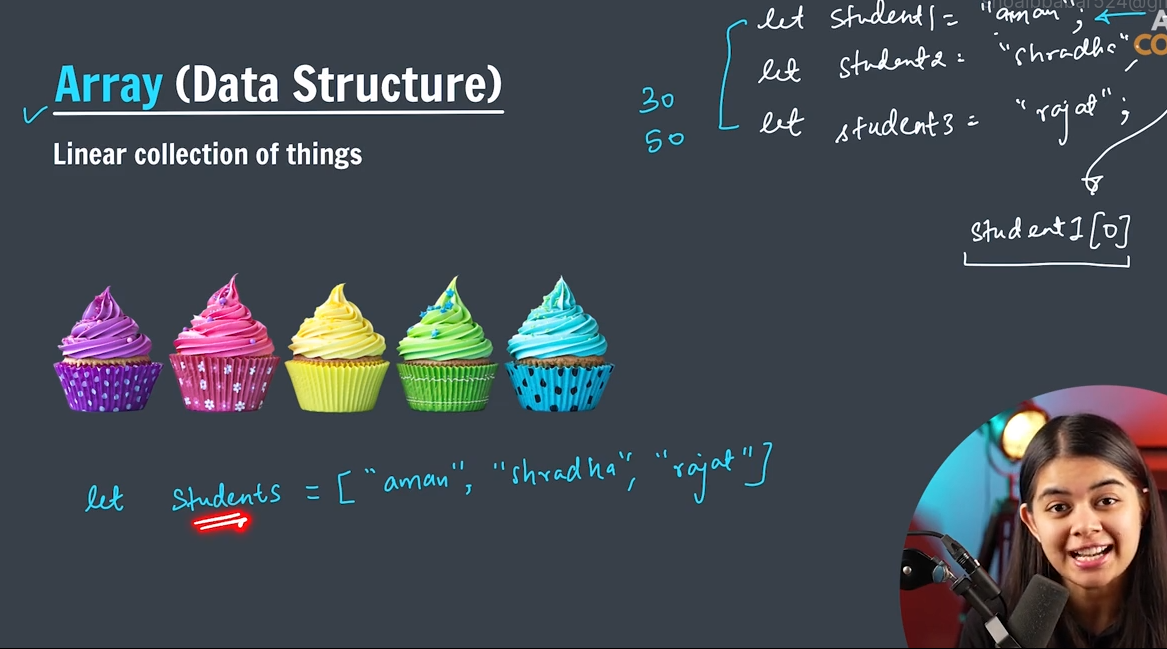 Array (Data Structure)
Linear collection of things
30
50
let student1 = "aman";
let student2 = "shradha"
let student3 = "rajat";
student1[0]
let students = ["aman", "shradha", "rajat"]